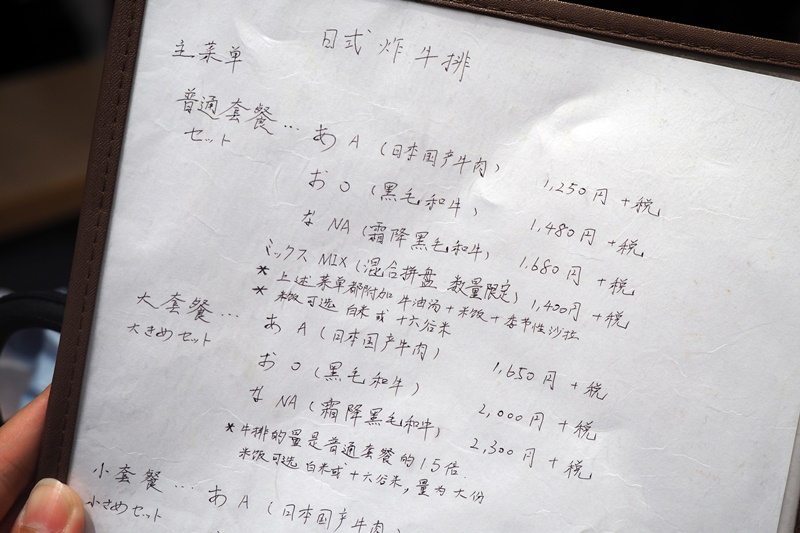 日式炸牛排
主菜单
普通套餐 … あ A (日本国产牛肉) 1,250円 +税
セット
お O (黑毛和牛) 1,480円 +税
な NA (霜降黑毛和牛) 1,680円 +税
ミックス MIX (混合拼盘 数量限定) 1,400円 +税
* 上述菜单都附加 牛油汤 + 米饭 + 季节性沙拉
* 米饭可选 白米或十六谷米
大套餐 … あ A (日本国产牛肉) 1,650円 +税
大きめセット
お O (黑毛和牛) 2,000円 +税
な NA (霜降黑毛和牛) 2,300円 +税
* 牛排的量是普通套餐的1.5倍.
米饭可选 白米或十六谷米, 量为大份
小套餐 … あ A (日本国产牛肉)
小さめセット